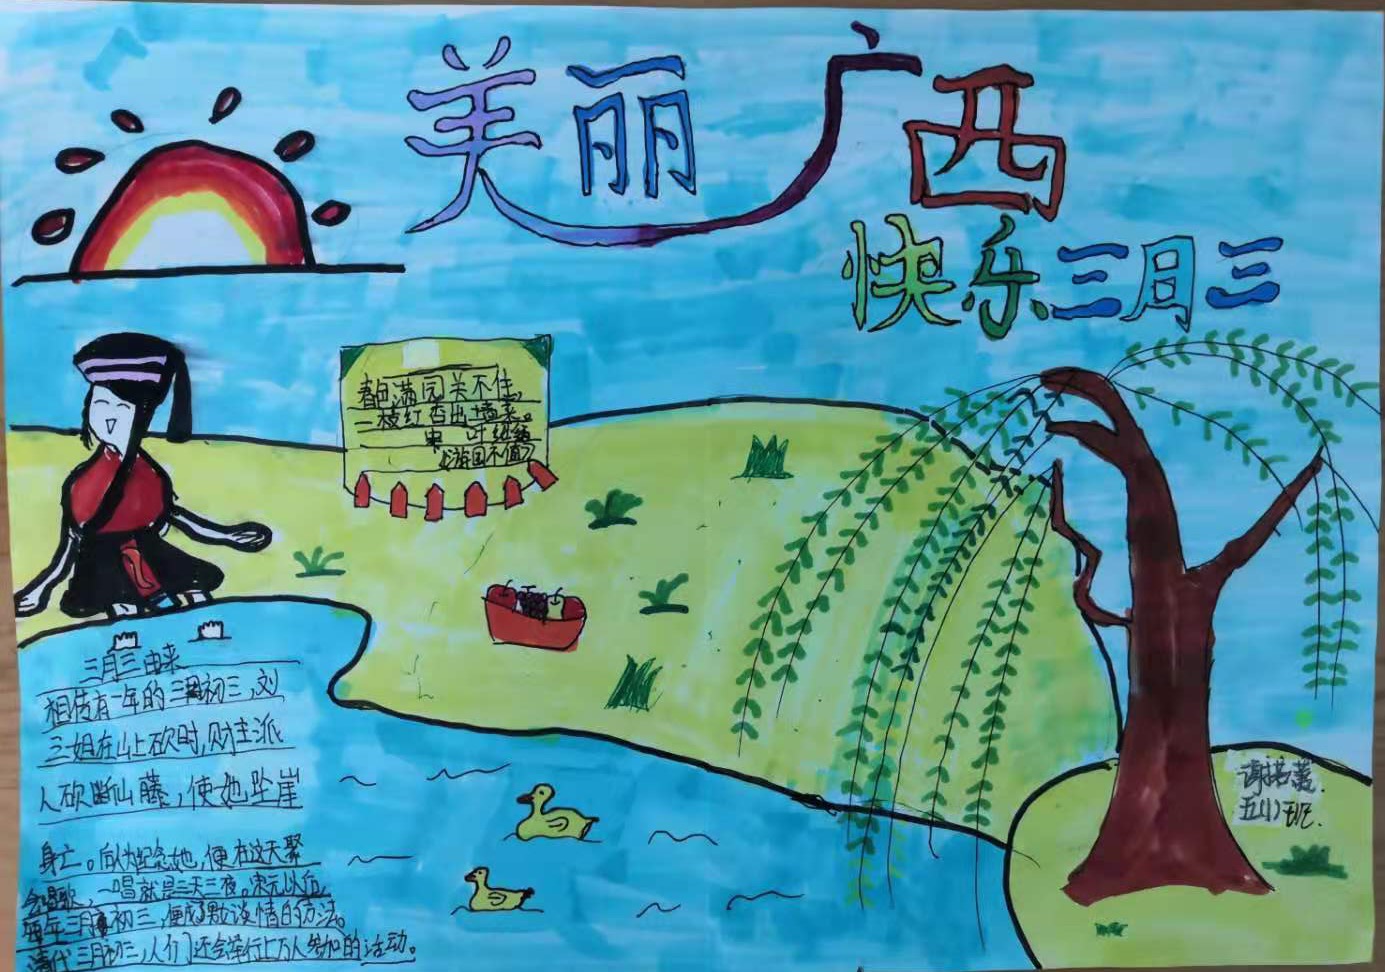 美丽广西
快乐三月三
春色满园关不住,
一枝红杏出墙来。
叶绍翁
《游园不值》
三月三由来
相传有一年的三月初三,刘
三姐在山上砍时,财主派
人砍断山藤,使她坠崖
身亡。后人为纪念她,便在这天聚
会唱歌,一唱就是三天三夜。宋元以后,
每年三月初三,便成了男女谈情的方法。
清代三月初三,人们还会举行上万人参加的活动。
五(1)班.